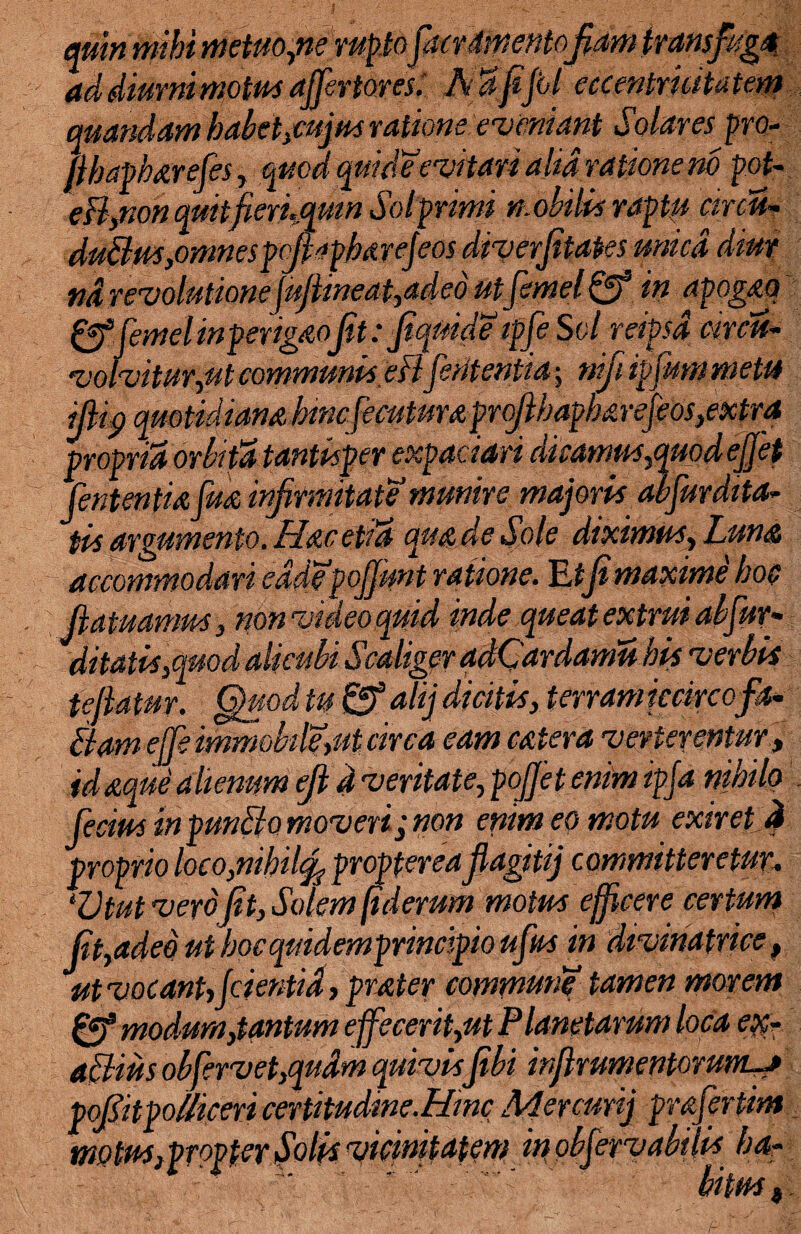 quin mihi metuo,ne rupto sacramento fiam transfuga
ad diurni motus assertores. Nã si sol eccentricitatem
quandam habet,cujus ratione eveniant Solares pro-
sthaphæreses, quod quidẽ evitari aliâ ratione nõ pot-
est,non quit fieri,quin Sol primi mobilis raptu circũ-
ductus,omnes postaphæreseos diversitates unicâ diur
nâ revolutione sustineat,adeò ut semel & in apogæo
& semel in perigæo sit: siquidẽ ipse Sol reipsâ circũ-
volvitur,ut communis est sententia; nisi ipsum metu
isti9 quotidianæ hinc secuturæ prosthaphæreseos,extra
propriã orbitã tantisper expaciari dicamus,quod esset
sententiæ suæ infirmitatẽ munire majoris absurdita-
tis argumento. Hæc etiã quæ de Sole diximus, Lunæ
accommodari eâdẽ possunt ratione. Et si maximè hoc
statuamus, non video quid inde queat extrui absur-
ditatis,quod alicubi Scaliger ad Cardamũ his verbis
testatur. Quod tu & alij dicitis, terram iccirco fa-
ctam esse immobilẽ,ut circa eam cætera verterentur,
id æquè alienum est à veritate, posset enim ipsa nihilo
secius in puncto moveri; non enim eo motu exiret à
proprio loco,nihilq; propterea flagitij committeretur.
Vtut verò sit, Solem siderum motus efficere certum
sit,adeò ut hoc quidem principio usus in divinatrice,
ut vocant, scientiâ, præter communẽ tamen morem
& modum,tantum effecerit,ut Planetarum loca ex-
actiùs observet,quàm quivis sibi instrumentorum
possit polliceri certitudine.Hinc Mercurij præsertim
motus, propter Solis vicinitatem inobservabilis ha-
bitus,